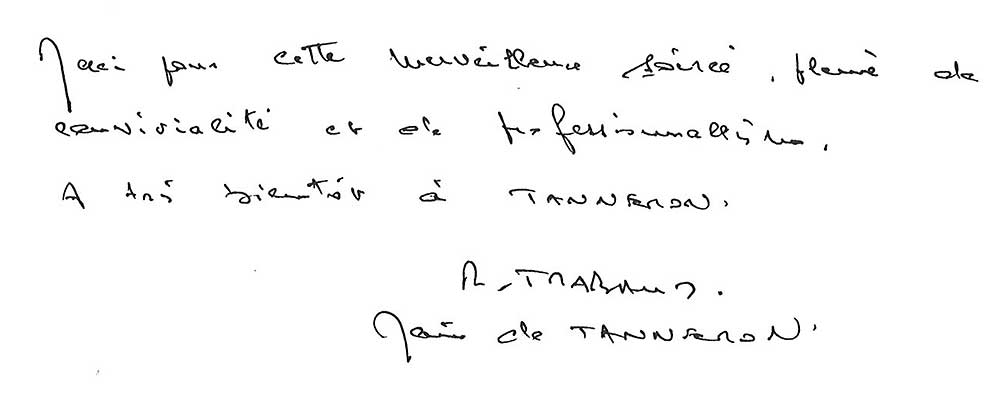 Merci pour cette merveilleuse soirée, pleine de
convivialité et de professionnalisme.
A très bientôt à TANNERON.
R. TRABAUD.
Maire de TANNERON.